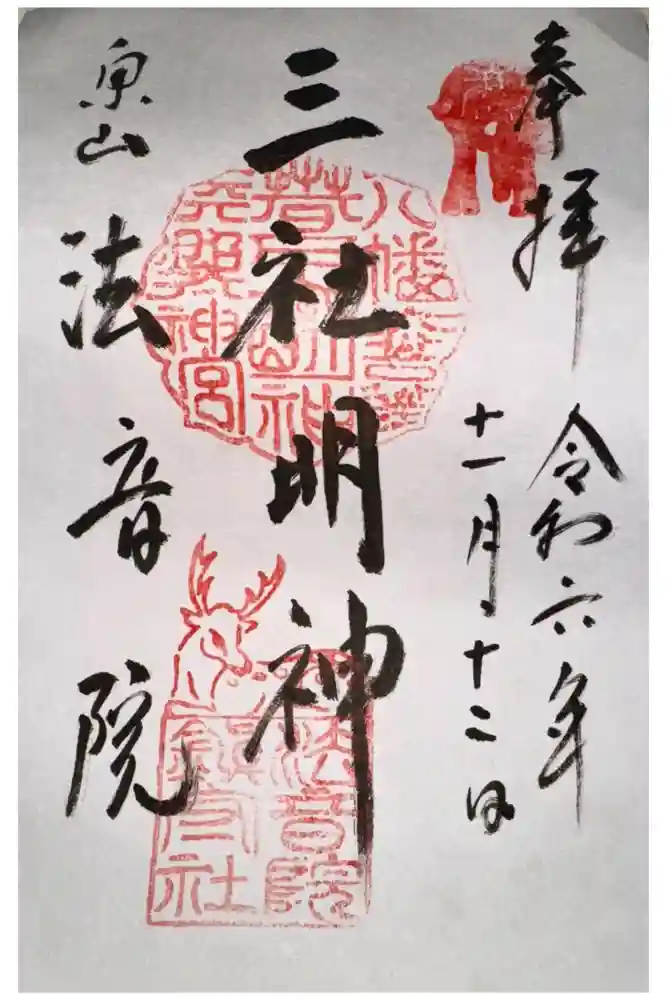 奉拝
令和六年
十一月十二日
三社明神
東山
法音院
八幡大菩薩
春日大明神
天照神宮
法音院
鎮守社